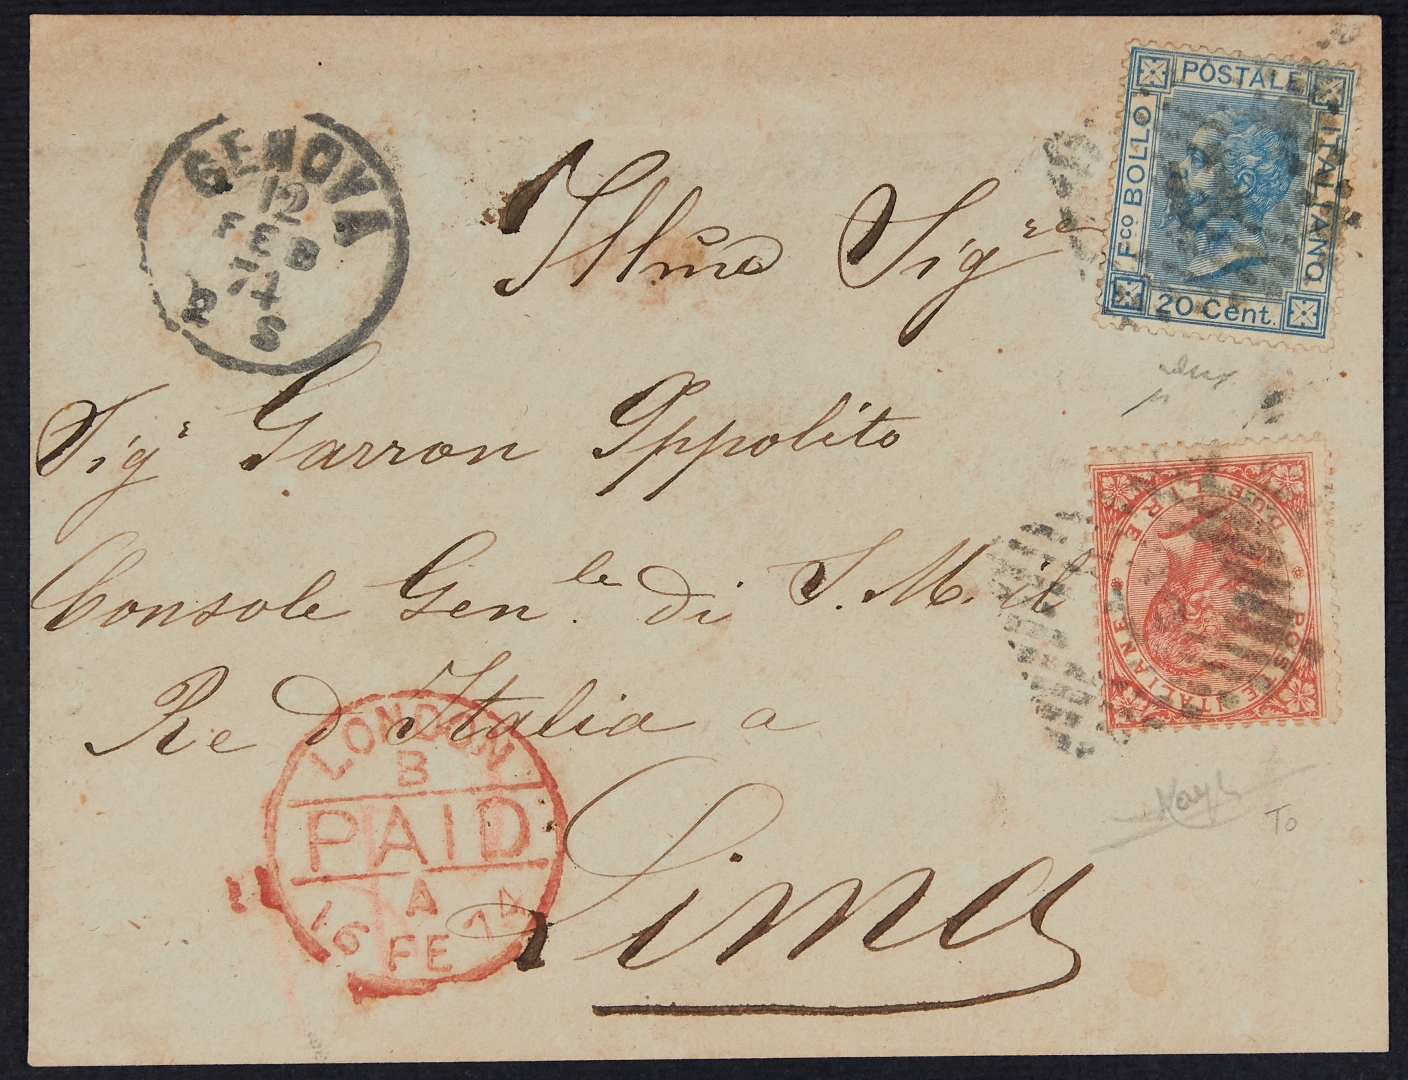 GENOVA
12
FEB
74
2 S
POSTALE
Fco BOLLO
ITALIANO
20 Cent.
Illmo Sigre
Sigr Garron Ippolito
Console Genle di S. M. il
Re d'Italia a
Lima
DUE LIRE
POSTE ITALIANE
LONDON
B
PAID
A
16 FE 74
To